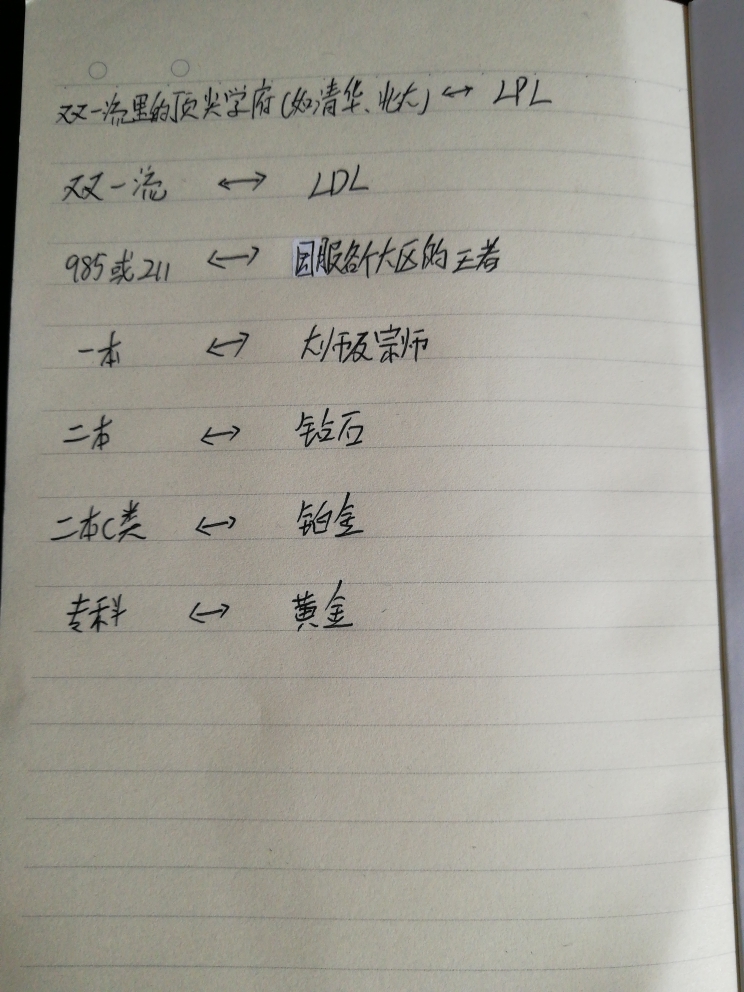 双一流里的顶尖学府(如清华、北大) ↔ LPL
双一流 ↔ LDL
985或211 ↔ 国服各个大区的王者
一本 ↔ 大师及宗师
二本 ↔ 钻石
二本C类 ↔ 铂金
专科 ↔ 黄金